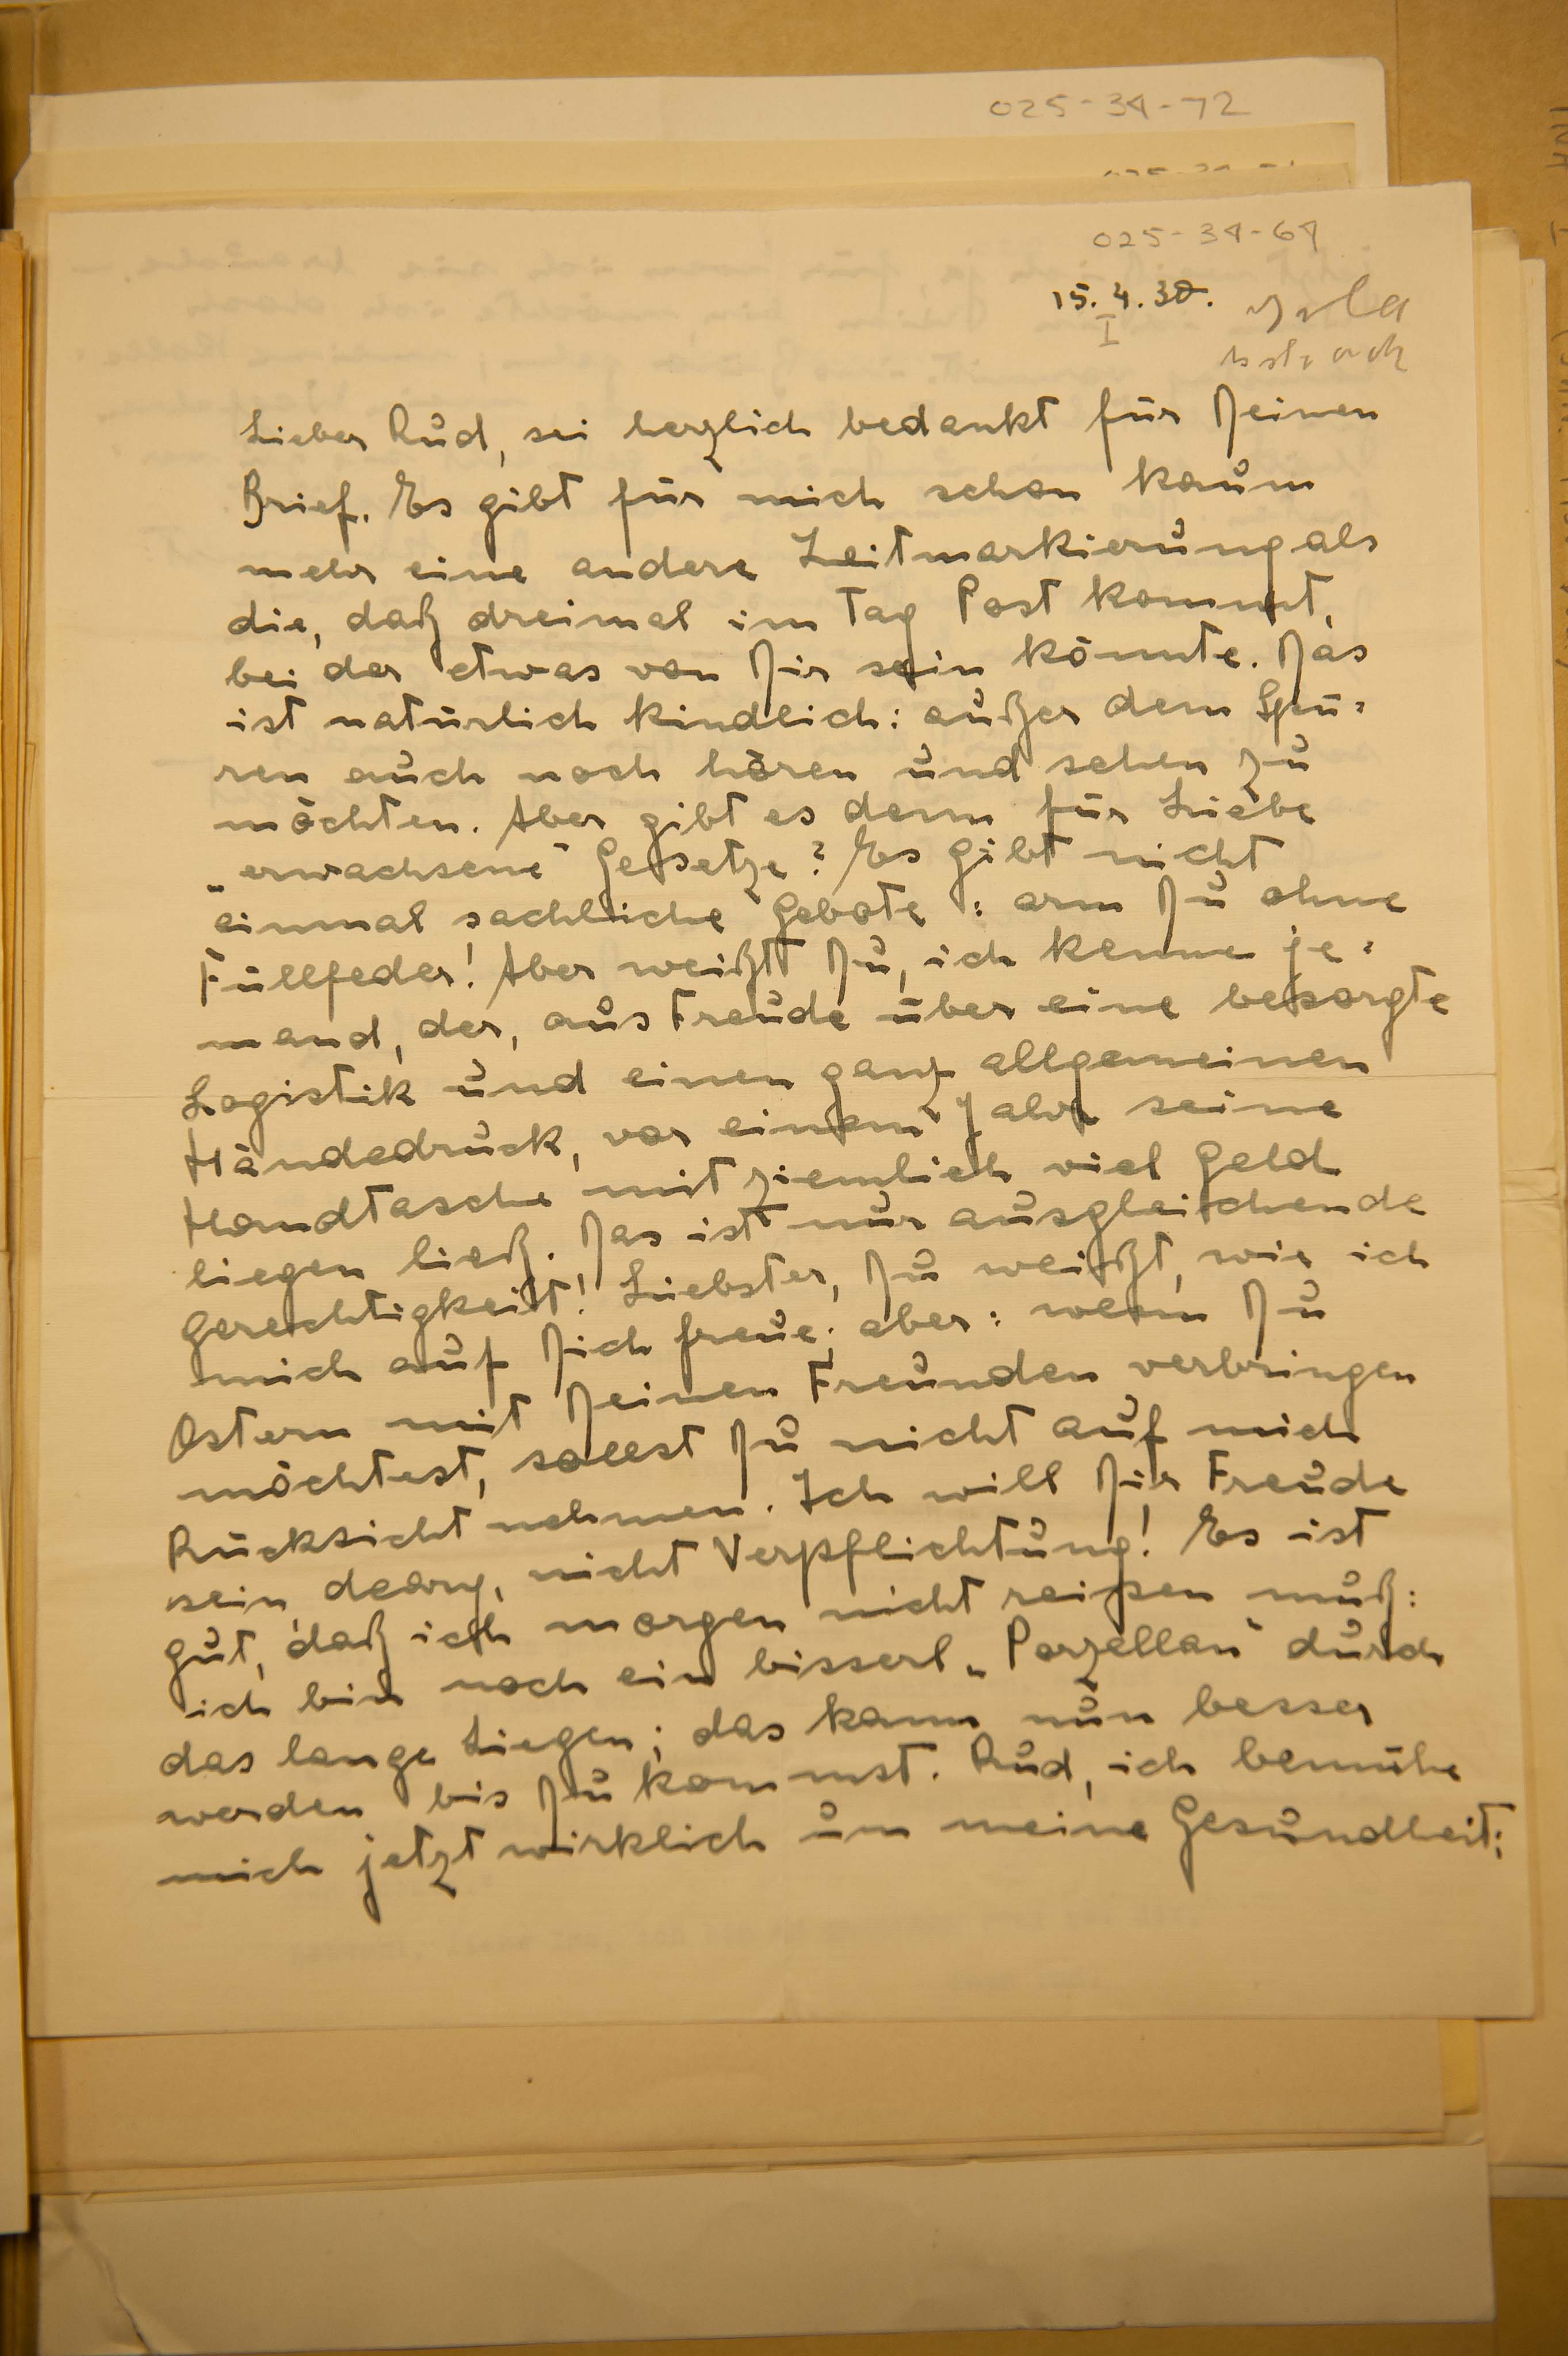 025-34-72
025-34-64
15.4.30.
I
Lieber Rud, sei herzlich bedankt für Deinen
Brief. Es gibt für mich schon kaum
mehr eine andere Zeitmarkierung als
die, daß dreimal im Tag Post kommt,
bei der etwas von Dir sein könnte. Das
ist natürlich kindlich: außer dem Spü=
ren auch noch hören und sehen zu
möchten. Aber gibt es denn für Liebe
„erwachsene“ Gesetze? Es gibt nicht
einmal sachliche Gebote: arm Du ohne
Füllfeder! Aber weißt Du, ich kenne je=
mand, der, aus Freude über eine besorgte
Logistik und einen ganz allgemeinen
Händedruck, vor einem Jahr seine
Handtasche mit ziemlich viel Geld
liegen ließ. Das ist nur ausgleichende
Gerechtigkeit! Liebster, Du weißt, wie ich
mich auf Dich freue; aber: wenn Du
Ostern mit Deinen Freunden verbringen
möchtest, sollst Du nicht auf mich
Rücksicht nehmen. Ich will Dir Freude
sein, deary, nicht Verpflichtung! Es ist
gut, daß ich morgen nicht reisen muß:
ich bin noch ein bisserl „Porzellan“ durch
das lange Liegen; das kann nun besser
werden bis Du kommst. Rud, ich bemühe
mich jetzt wirklich um meine Gesundheit;